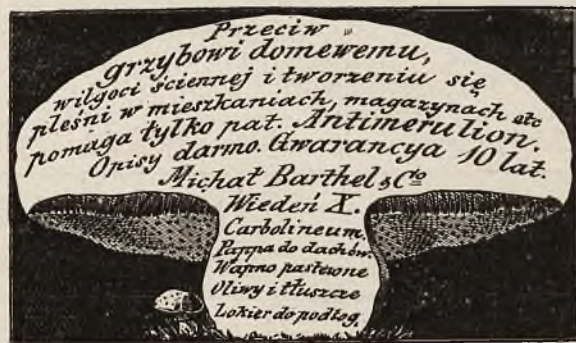 Przeciw
grzybowi domewemu,
wilgoci ściennej i tworzeniu się
pleśni w mieszkaniach, magazynach etc
pomaga tylko pat. Antimerulion.
Opisy darmo. Gwarancya 10 lat.
Michał Barthel & Cᵗᵒ
Wiedeń X.
Carbolineum.
Pappa do dachów.
Wapno pastewne
Oliwy i tłuszcze
Lokier do podłog.